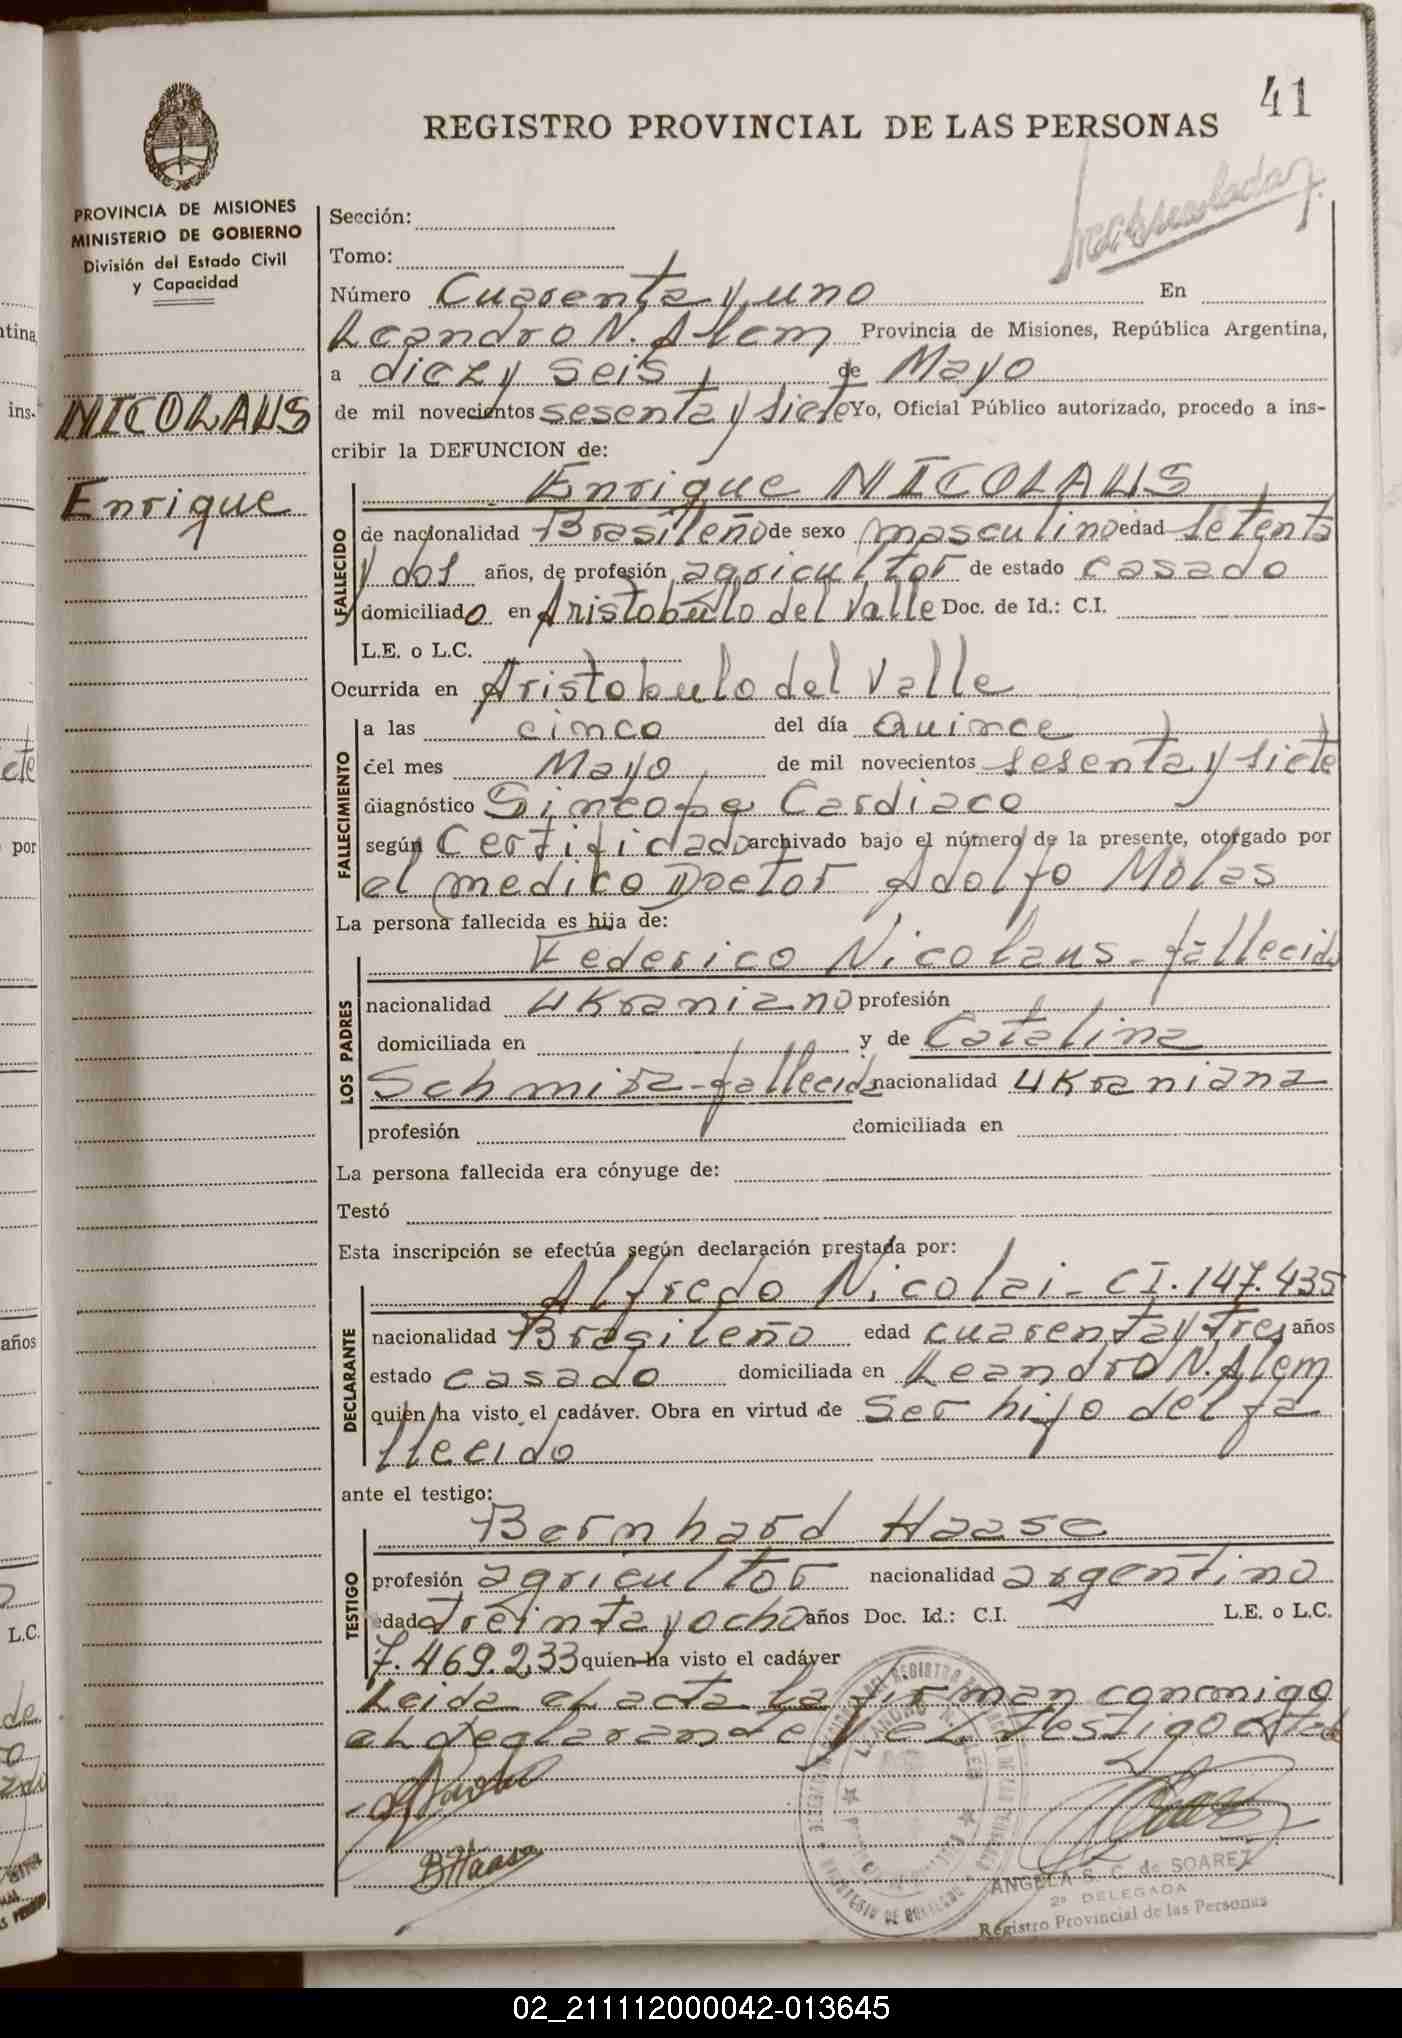 41
REGISTRO PROVINCIAL DE LAS PERSONAS
PROVINCIA DE MISIONES
MINISTERIO DE GOBIERNO
División del Estado Civil
y Capacidad
NICOLAUS
Enrique
Sección:
Tomo:
Número Cuarenta y uno En
Leandro N. Alem Provincia de Misiones, República Argentina,
a diez y seis de Mayo
de mil novecientos sesenta y siete Yo, Oficial Público autorizado, procedo a ins-
cribir la DEFUNCION de:
Enrique NICOLAUS
FALLECIDO
de nacionalidad Brasileño de sexo masculino edad setenta
y dos años, de profesión agricultor de estado casado
domiciliado en Aristobulo del Valle Doc. de Id.: C.I.
L.E. o L.C.
Ocurrida en Aristobulo del Valle
FALLECIMIENTO
a las cinco del día Quince
del mes Mayo de mil novecientos sesenta y siete
diagnóstico Sincope Cardiaco
según Certificado archivado bajo el número de la presente, otorgado por
el medico Doctor Adolfo Molas
La persona fallecida es hija de:
LOS PADRES
Federico Nicolaus - fallecido
nacionalidad Ukraniano profesión
domiciliada en y de Catalina
Schmidt - fallecida nacionalidad Ukraniana
profesión domiciliada en
La persona fallecida era cónyuge de:
Testó
Esta inscripción se efectúa según declaración prestada por:
DECLARANTE
Alfredo Nicolai - CI. 147.435
nacionalidad Brasileño edad cuarenta y tres años
estado casado domiciliada en Leandro N. Alem
quien ha visto el cadáver. Obra en virtud de Ser hijo del fa
llecido
ante el testigo:
TESTIGO
Bernhard Haase
profesión agricultor nacionalidad argentino
edad treinta y ocho años Doc. Id.: C.I. L.E. o L.C.
7.469.233 quien ha visto el cadáver
Leida el acta la firman conmigo
el declarante y el testigo
B Haase
ANGELA S. C. de SOAREZ
2ª DELEGADA
Registro Provincial de las Personas
02_211112000042-013645